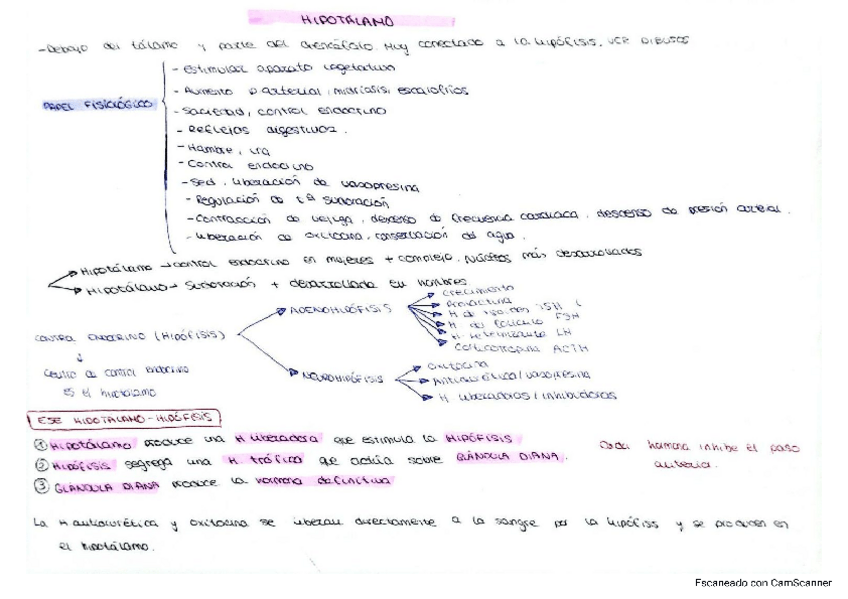 HIPOTÁLAMO
-Debajo del tálamo y parte del diencéfalo. Muy conectado a la hipófisis. VER DIBUJOS
PAPEL FISIOLÓGICO
- Estimular aparato vegetativo
- Aumento P arterial, midriasis, escalofríos
- Saciedad, control endocrino
- Reflejos digestivos.
- Hambre, ira
- Control endocrino
- Sed, liberación de vasopresina
- Regulación de tª sudoración
- Contracción de vejiga, descenso de frecuencia cardiaca, descenso de presión arterial.
- Liberación de oxitocina, conservación del agua.
Hipotálamo → control endocrino en mujeres + complejo. Núcleos más desarrollados
Hipotálamo → Sudoración + desarrollada en hombres
CONTROL ENDOCRINO (HIPÓFISIS)
↓
Centro de control endocrino
es el hipotálamo
ADENOHIPÓFISIS
Crecimiento
Prolactina
H. del folículo FSH
H. luteinizante LH
Corticotropina ACTH
NEUROHIPÓFISIS
Oxitocina
Antidiurética/vasopresina
H. liberadoras/inhibidoras
EJE HIPOTÁLAMO-HIPÓFISIS
① HIPOTÁLAMO produce una H liberadora que estimula la HIPÓFISIS
② HIPÓFISIS segrega una H. trófica que actúa sobre GLÁNDULA DIANA.
③ GLÁNDULA DIANA produce la hormona definitiva
Cada hormona inhibe el paso
anterior.
La H antidiurética y oxitocina se liberan directamente a la sangre por la hipófisis y se producen en
el hipotálamo.
Escaneado con CamScanner